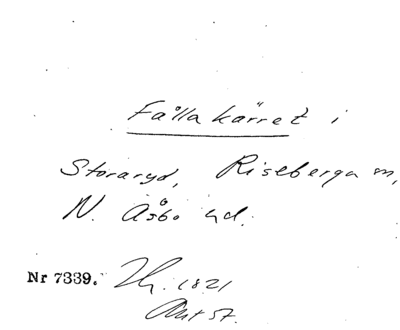 Fålla kärret i
Storaryd, Riseberga sn,
N. Åsbo hd.
Nr 7339. 1821